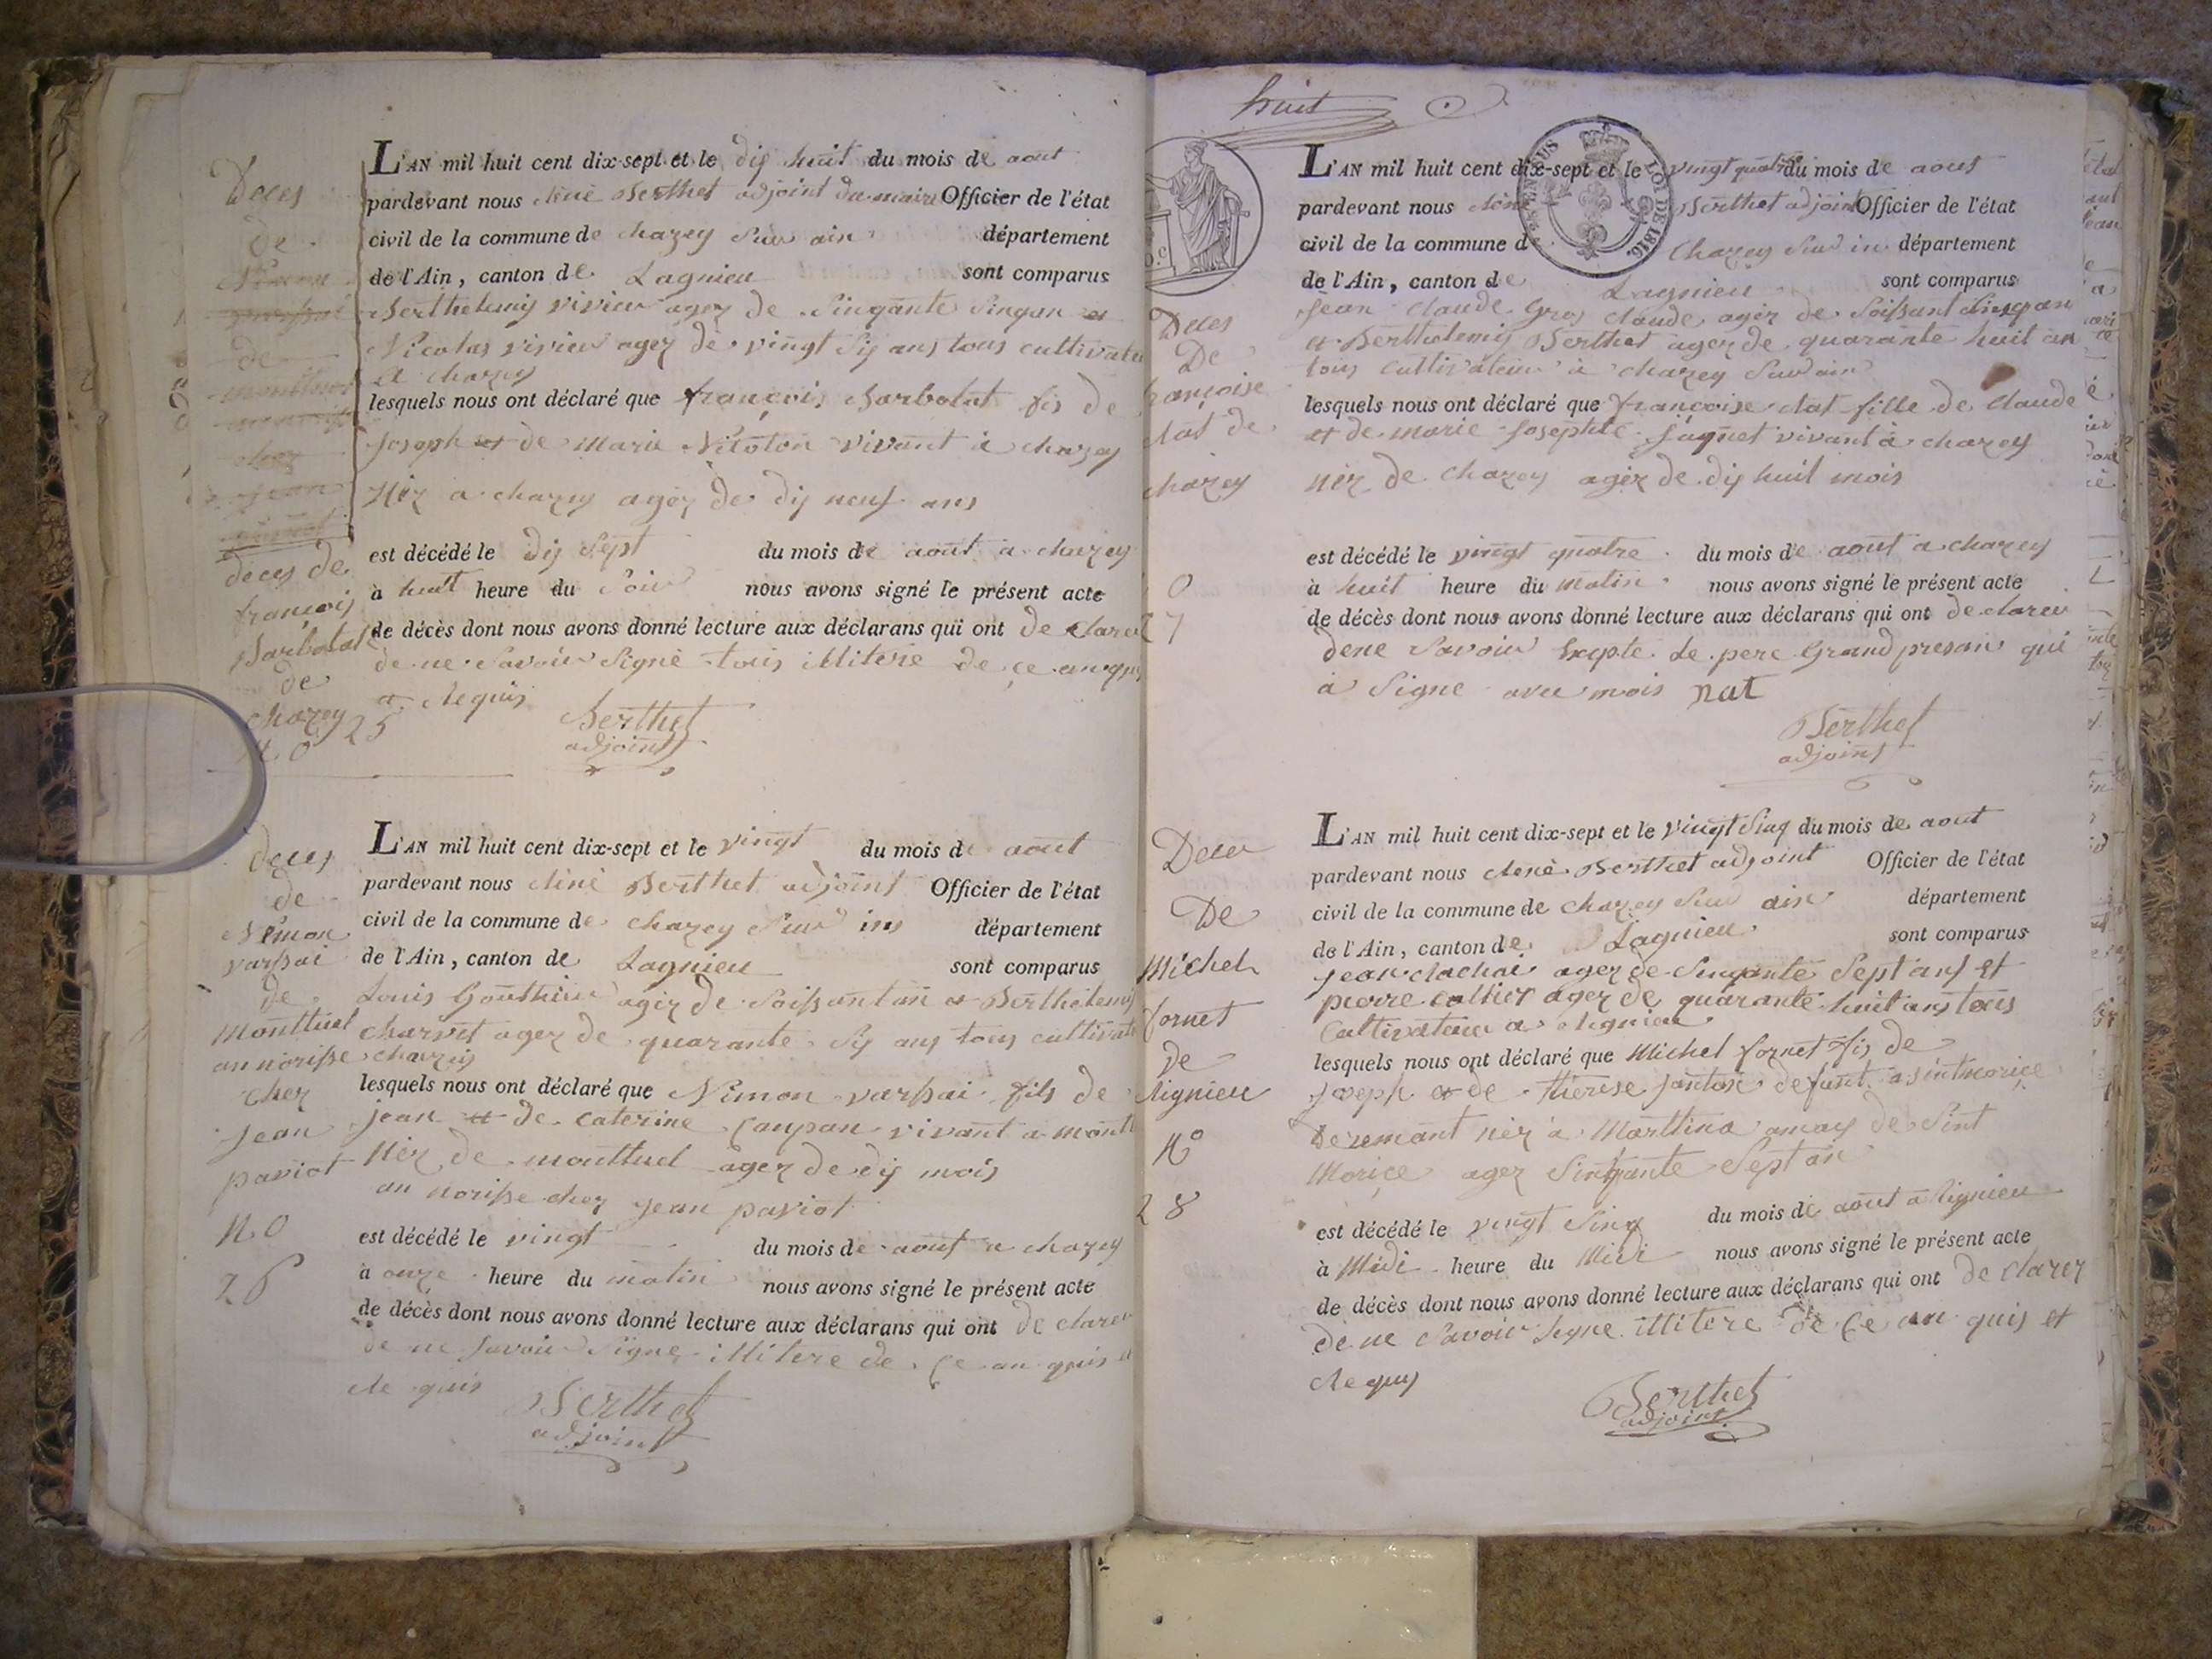 Deces
de
de
chez
jean
deces de
françois
Barbolat
de
chazey
N.o 25
L'AN mil huit cent dix-sept et le dis huit du mois de aout
pardevant nous Berthet adjoint du maire Officier de l'état
civil de la commune de chazey Sur ain département
de l'Ain, canton de Lagnieu sont comparus
Berthelemis vivier agez de Sinqante Sinqan et
Nicolas vivier agez de vingt Sis ans tous cultivateu
a chazey
lesquels nous ont déclaré que françois Barbolat fis de
Joseph et de Marie vivant à chazey
Nez a chazey agez de dis neuf ans
est décédé le dis Sept du mois de aout a chazey
à huit heure du Soir nous avons signé le présent acte
de décès dont nous avons donné lecture aux déclarans qui ont de clarer
de ne Savoir Signe tous illitere de ce anquis
et Requis
Berthet
adjoint
Deces
de
Nimon
varsai
de
Monttuel
an norisse
chez
jean
paviot
N.o
26
L'AN mil huit cent dix-sept et le vingt du mois de aout
pardevant nous Berthet adjoint Officier de l'état
civil de la commune de chazey Sur ins département
de l'Ain, canton de Lagnieu sont comparus
Louis Gouthier agez de Soissantan et Berthelemis
Charvet agez de quarante Sis ans tous cultivate
chazeis
lesquels nous ont déclaré que Nimon varsai fils de
jean et de Caterine Caupan vivant a montt
Nez de monttuel agez de dis mois
an norisse chez jean paviot
est décédé le vingt du mois de aout a chazey
à onze heure du matin nous avons signé le présent acte
de décès dont nous avons donné lecture aux déclarans qui ont de clarer
de ne Savoir Signe illitere de Ce an quis et
Re quis
Berthet
adjoint
huit
LOI DE 1816.
Deces
De
françoise
de
chazey
27
L'AN mil huit cent dix-sept et le vingt quatre du mois de aout
pardevant nous Berthet adjoint Officier de l'état
civil de la commune d Chazey Sur in département
de l'Ain, canton de Lagnieu sont comparus
Jean Claude Gros Claude agez de Soissant Sinq an
et Berthelemis Berthet agez de quarante huit an
tous Cultivateur à chazey Sur ain
lesquels nous ont déclaré que françoise fille de Claude
et de Marie Josephte Jaquet vivant à chazey
nez de chazey agez de dis huit mois
est décédé le vingt quatre du mois de aout a chazey
à huit heure du matin nous avons signé le présent acte
de décès dont nous avons donné lecture aux déclarans qui ont de clarer
dene Savoir le pere Grand qui
a Signe avec mois nat
Berthet
adjoint
Deces
De
Michel
fornet
de
Rignieu
No
28
L'AN mil huit cent dix-sept et le vingt Sinq du mois de aout
pardevant nous Berthet adjoint Officier de l'état
civil de la commune de chazey Sur ain département
de l'Ain, canton de Lagnieu sont comparus
jean agez de Sinqante Sept ans et
pierre agez de quarante huit ans tous
Cultivateur a Rignieu
lesquels nous ont déclaré que Michel fornet fis de
joseph et de therese defunt a sintmorice
nez à amay de Sint
Morice agez Sinqante Sept an
est décédé le vingt Sinq du mois de aout a Rignieu
à Midi heure du Midi nous avons signé le présent acte
de décès dont nous avons donné lecture aux déclarans qui ont de clarer
de ne Savoir Signe illitere de Ce an quis et
Re quis
Berthet
adjoint